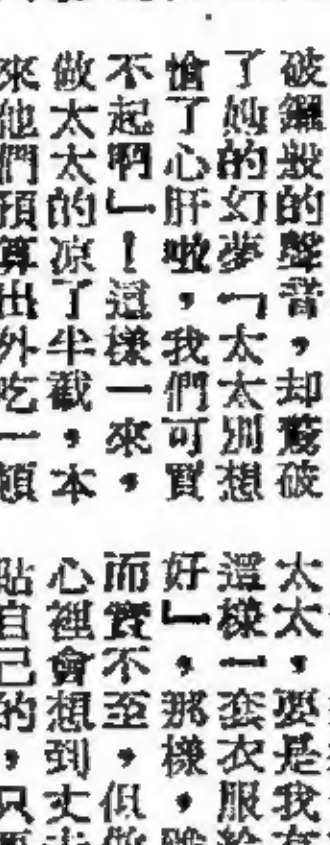 破鑼般的聲音，却驚破
了她的幻夢「太太別想
愴了心肝啦，我們可買
不起啊」！這樣一來，
做太太的凉了半截，本
來他們預算出外吃一頓
太太，要是我有
這樣一套衣服給
好」，那樣，雖
而實不至，但做
心裡會想到丈夫
貼自己的，只要